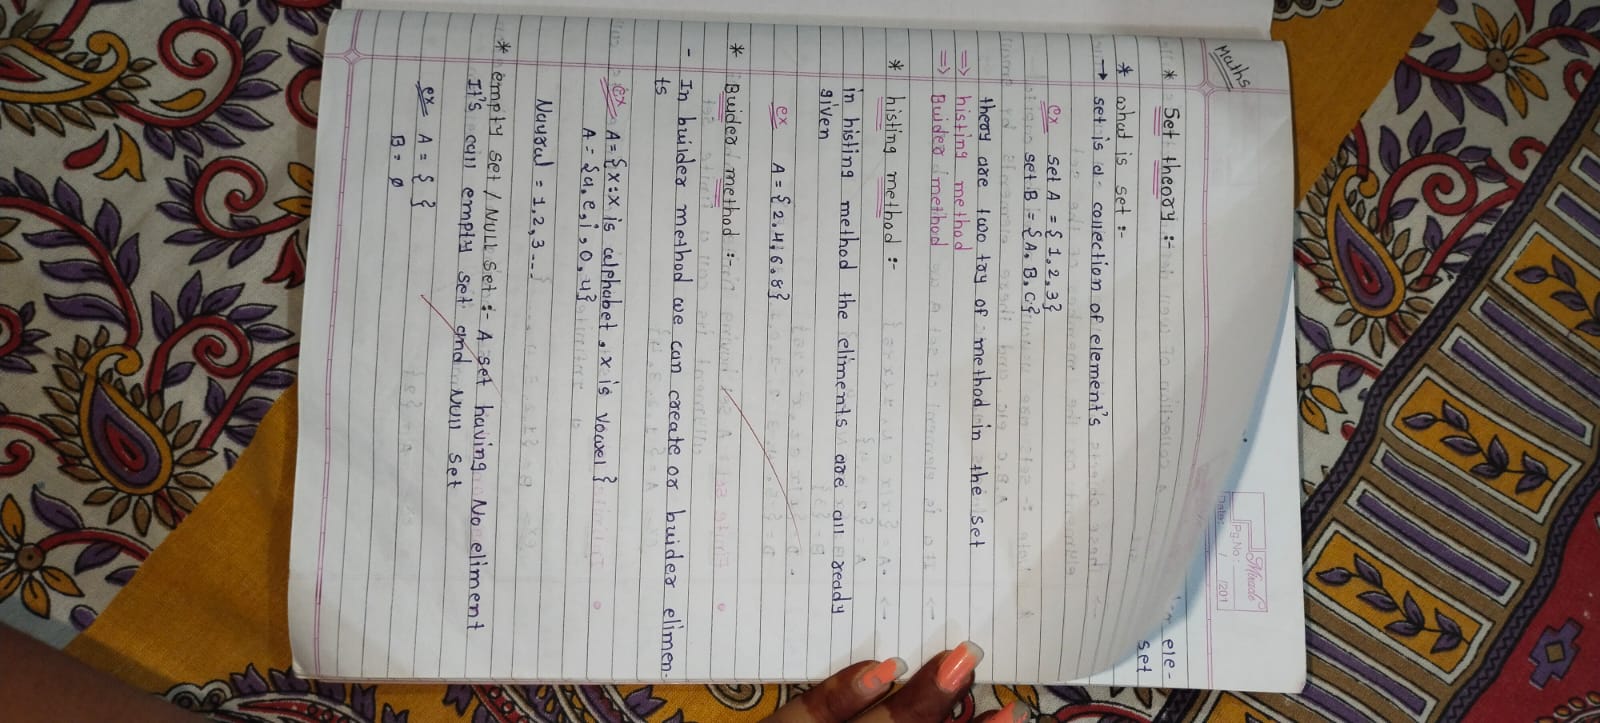 Maths
Miracle
Pg.No:
Date: / /201
* Set theory :-
* what is set :-
→ set is a collection of element's
ex set A = {1, 2, 3}
set B = {A, B, C}
theory are two tay of method in the set
=> histing method
=> Buider method
* histing method :-
in histing method the eliments are all ready
given
ex A = {2, 4, 6, 8}
* Buider method :-
- In buider method we can create or buider elimen-
ts
ex A = {x : x is alphabet, x is vowel}
A = {a, e, i, o, u}
Nayral = 1, 2, 3 ...}
* empty set / Null set :- A set having No eliment
It's call empty set and Null set
ex A = { }
B = ø
ele-
set